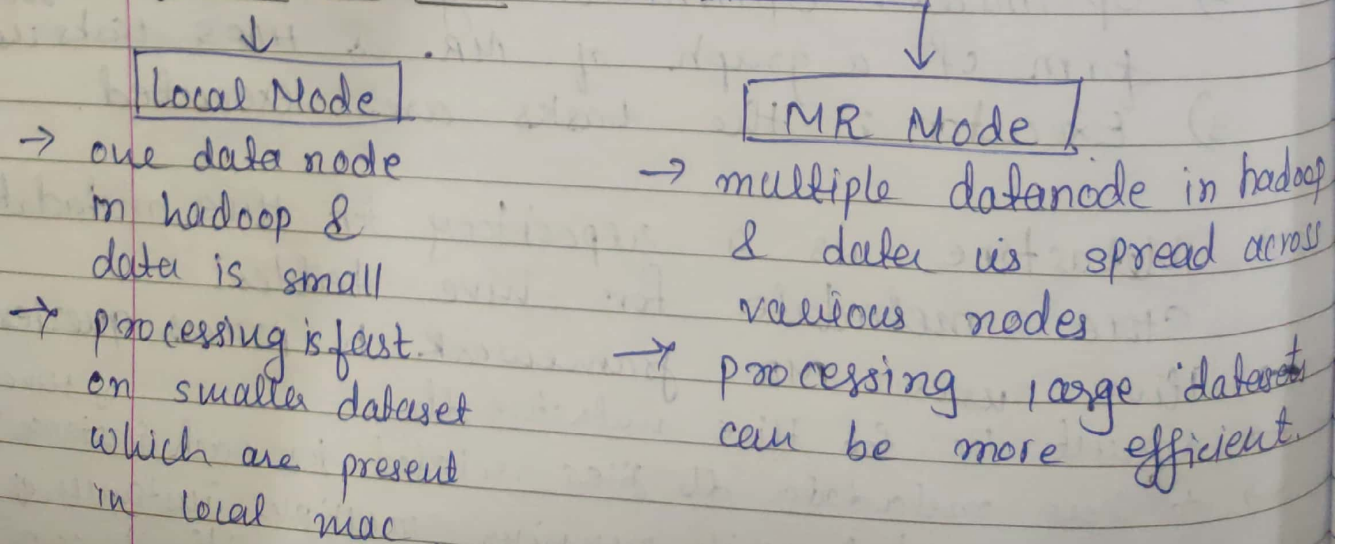 Local Mode
→ one data node
in hadoop &
data is small
→ processing is fast.
on smaller dataset
which are present
in local mac
MR Mode
→ multiple datanode in hadoop
& data is spread across
various nodes
→ processing large datasets
can be more efficient.